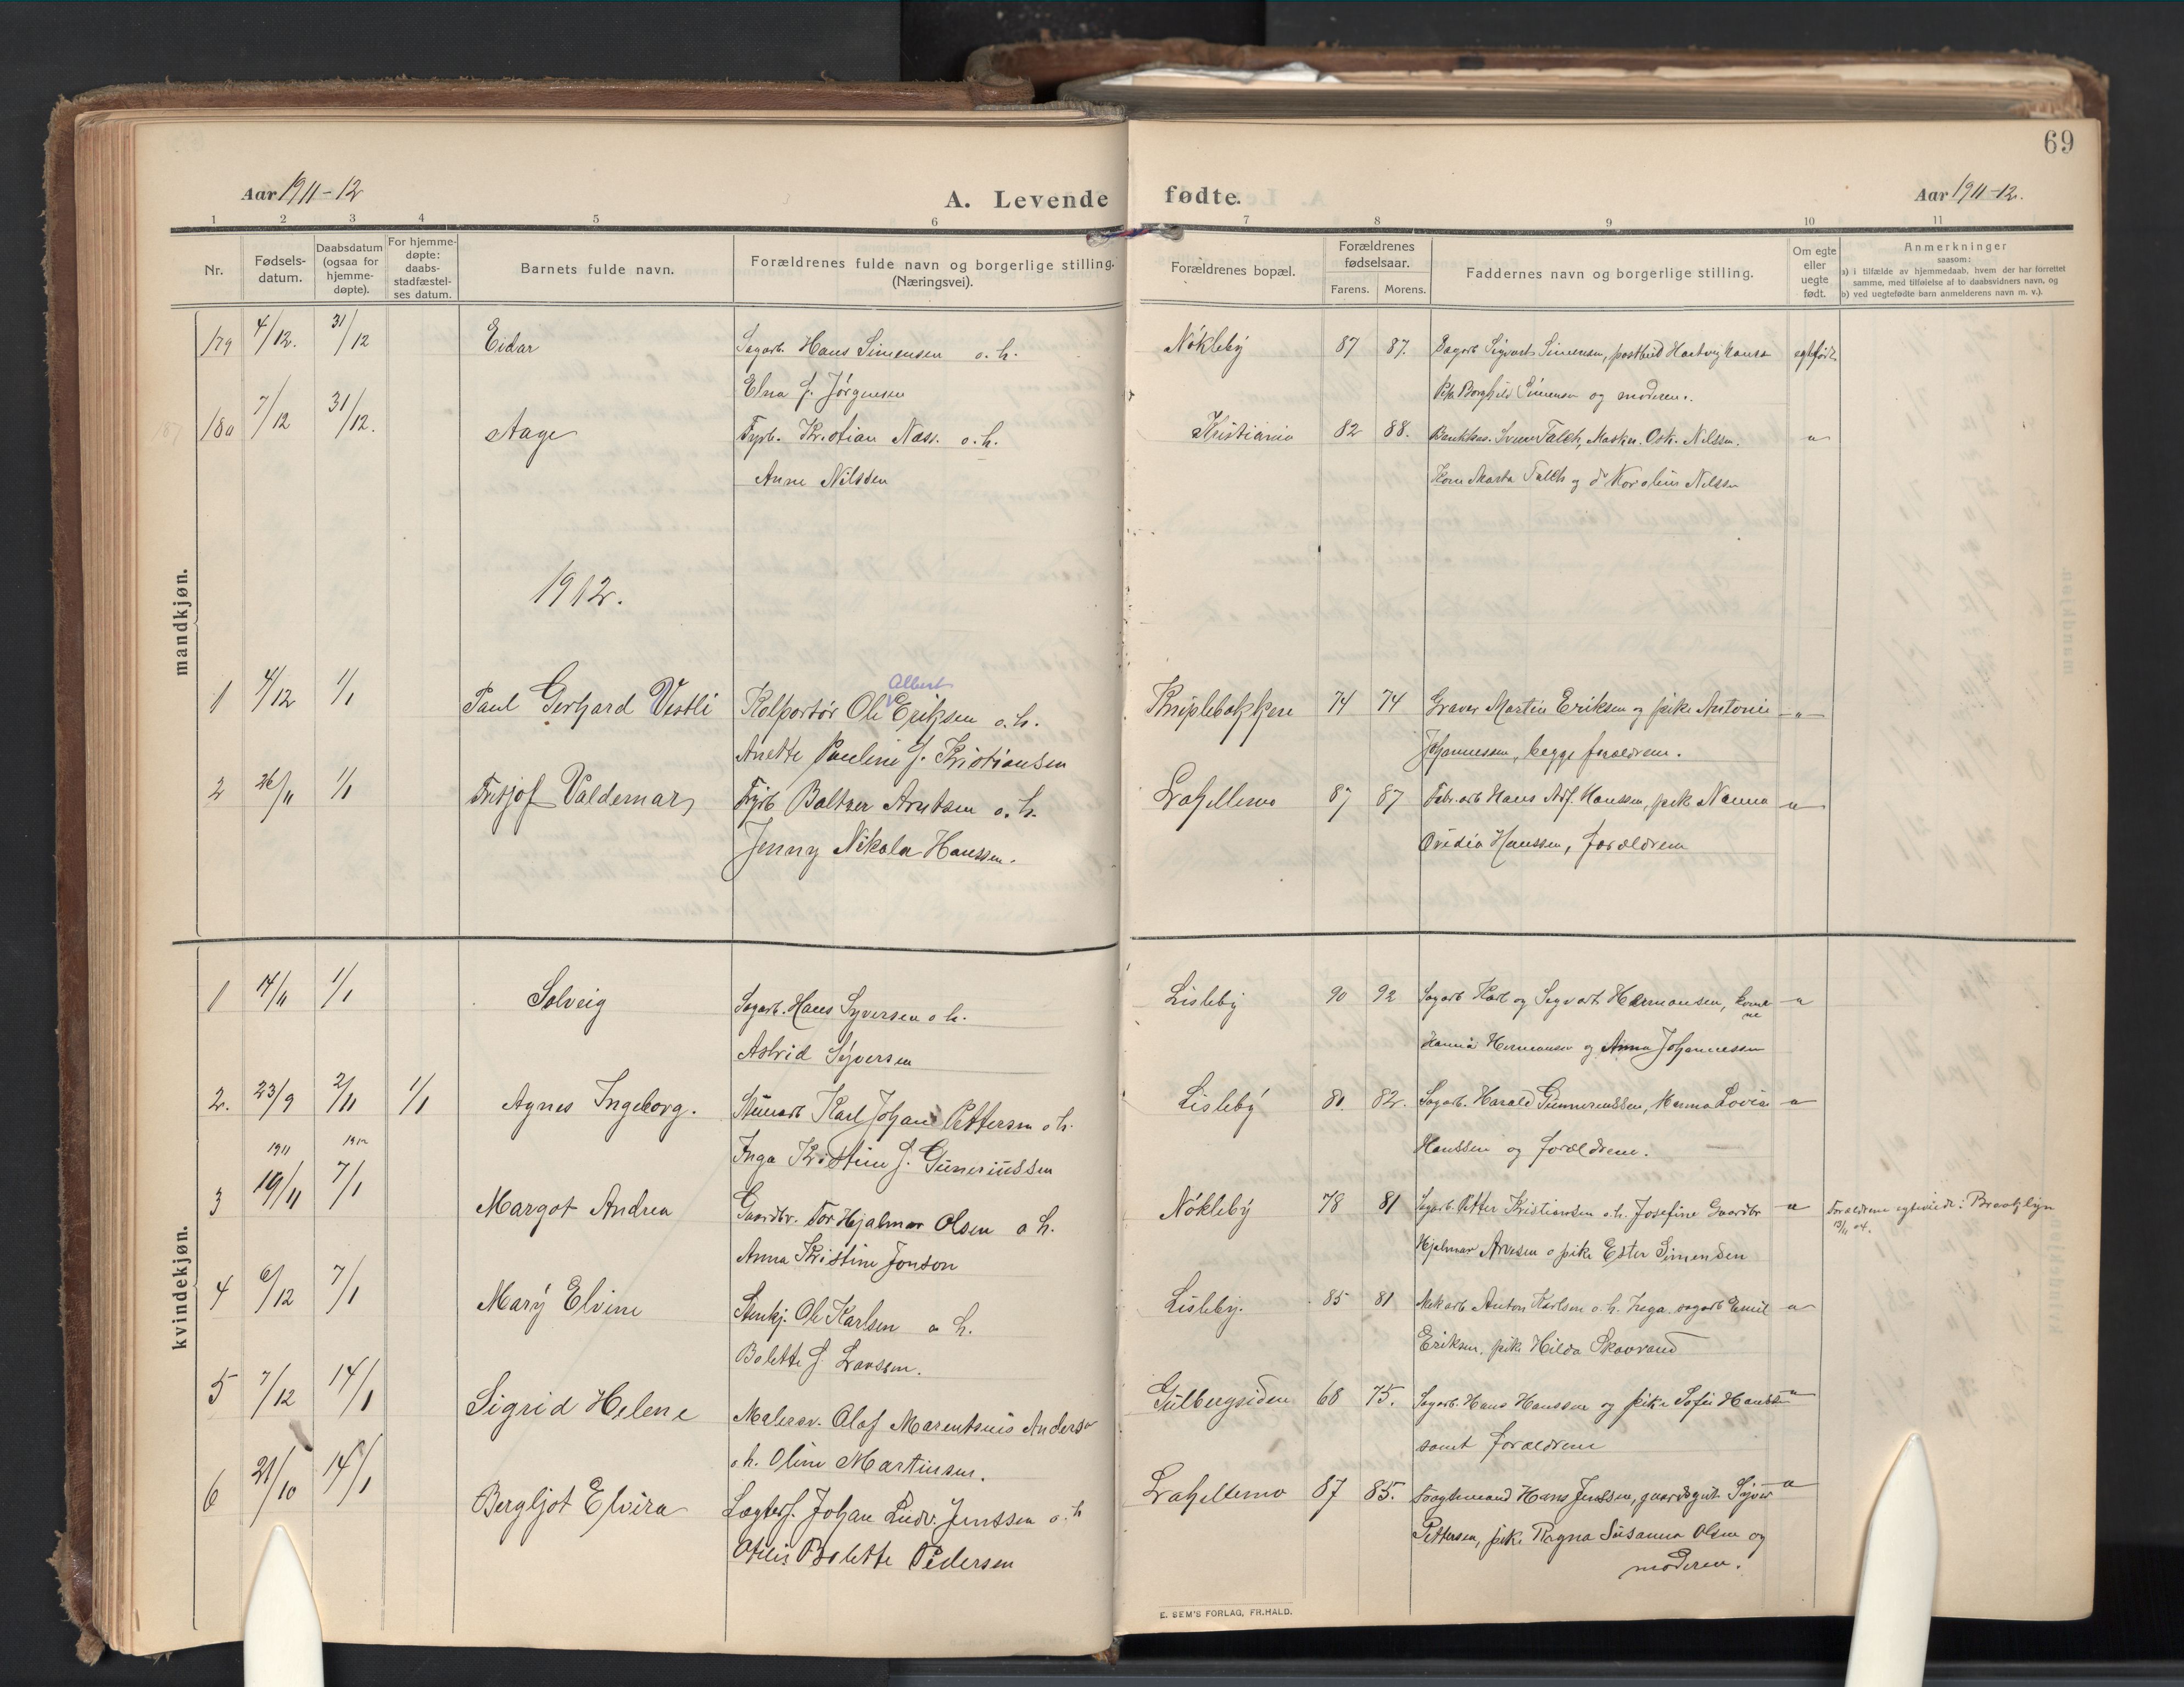 69
Aar 1911-12
A. Levende fødte.
Aar 1911-12.
1 2 3 4 5 6 7 8 9 10 11
Nr.
Fødsels-
datum.
Daabsdatum
(ogsaa for
hjemme-
døpte).
For hjemme-
døpte:
daabs-
stadfæstel-
ses datum.
Barnets fulde navn.
Forældrenes fulde navn og borgerlige stilling.
(Næringsvei).
Forældrenes bopæl.
Forældrenes
fødselsaar.
Farens. Morens.
Faddernes navn og borgerlige stilling.
Om egte
eller
uegte
født.
Anmerkninger
saasom:
a) i tilfælde av hjemmedaab, hvem der har forrettet
samme, med tilføielse af to daabsvidners navn, og
b) ved uegtefødte barn anmelderens navn m. v.).
mandkjøn.
179 4/12. 31/12 Eidar Sagarb. Hans Simensen o. h. Nökleby 87 87. Sagarb Sigvart Simensen, postbud Hartvig Hansen egtefødt
Elna f. Jörgensen Pike Borghild Simensen og moderen.
180 7/12 31/12. Aage Fyrb. Kristian Næss. o. h. Kristiania 82 88. Svein Falch, Maskin. Osk. Nilssen. "
Anne Nilsden Kone Marta Falch og do Karoline Nilssen
1912.
1 4/12 1/1 Paul Gerhard Vestli Kolportör Ole Albert Eriksen o. h. Kniplebakkene 74 74 Graver Martin Eriksen og pike Antonie "
Anette Pauline f. Kristiansen Johannessen, begge forældrene.
2 26/11 1/1 Fritjof Valdemar Fyrb Baltzer Arntsen o. h. Lahellemo 87 87 Fabr.arb Hans Adf. Hanssen, pike Nanna "
Jenny Nikola Hanssen. Ovidia Hanssen, forældrene
kvindekjøn.
1 14/11 1/1 Solveig Sagarb. Hans Syversen o h. Lisleby 90 92 Sagarb Karl og Sigvart Hermansen, koner "
ne
Astrid Syversen Hanna Hermansen og Anna Johannessen
2. 23/9 2/11 1/1 Agnes Ingeborg. Karl Johan Pettersen o h. Lisleby 81. 82. Sagarb. Harald Gunneriussen, Lovise "
Inga Kristine f. Guneriussen Hanssen og forældrene.
1911 1912
3 19/11 7/1 Margot Andrea Gaardbr. Tor Hjalmar Olsen o h. Nökleby 78 81 Sagarb. Petter Kristiansen o.h. Josefine Gaardbr " Forældrene egteviede i Brooklyn
13/11 04.
Anna Kristine Jonson Hjalmar Arvesen o pike Ester Simensen
4 6/12 7/1 Mary Elvine Stenhj. Ole Karlsen o h. Lisleby. 85 81 Mek arb Anton Karlsen o. h. Inga. sagarb Emil "
Bolette f. Larssen. Eriksen, pike Hilda Skavrand
5 7/12 14/1 Sigrid Helene Malersv. Olaf Marentsius Andersen Gulbergsiden 68 75. Sagarb. Hans Hanssen og pike Sofie Hansen "
o.h. Oline Martinsen. samt forældrene
6 21/10 14/1 Bergljot Elvira Johan Ludv. Jenssen o. h Lahellemo 87 85. Hans Jenssen, gaardsgut Syver "
Otilie Bolette Pedersen Pettersen, pike Ragna Susanna Olsen og
moderen.
E. SEM'S FORLAG, FR.HALD.